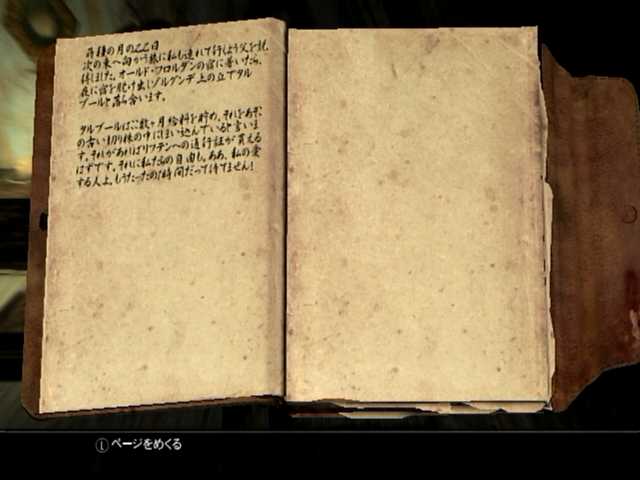 蒔種の月の22日
次の東へ向かう旅に私も連れて行くよう父を説
得しました。オールド・フロルダンの宿に着いたら、
夜に宿を抜け出しゾルグンデ上の丘でタル
ブールと落ち合います。
タルブールはここ数ヶ月給料を貯め、それをあそこ
の古い切り株の中にしまい込んでいると言いま
す。それがあればリフテンへの通行証が買える
はずです。それに私たちの自由も。ああ、私の愛
する人よ。もうたったの1時間だって待てません!
Ⓛページをめくる